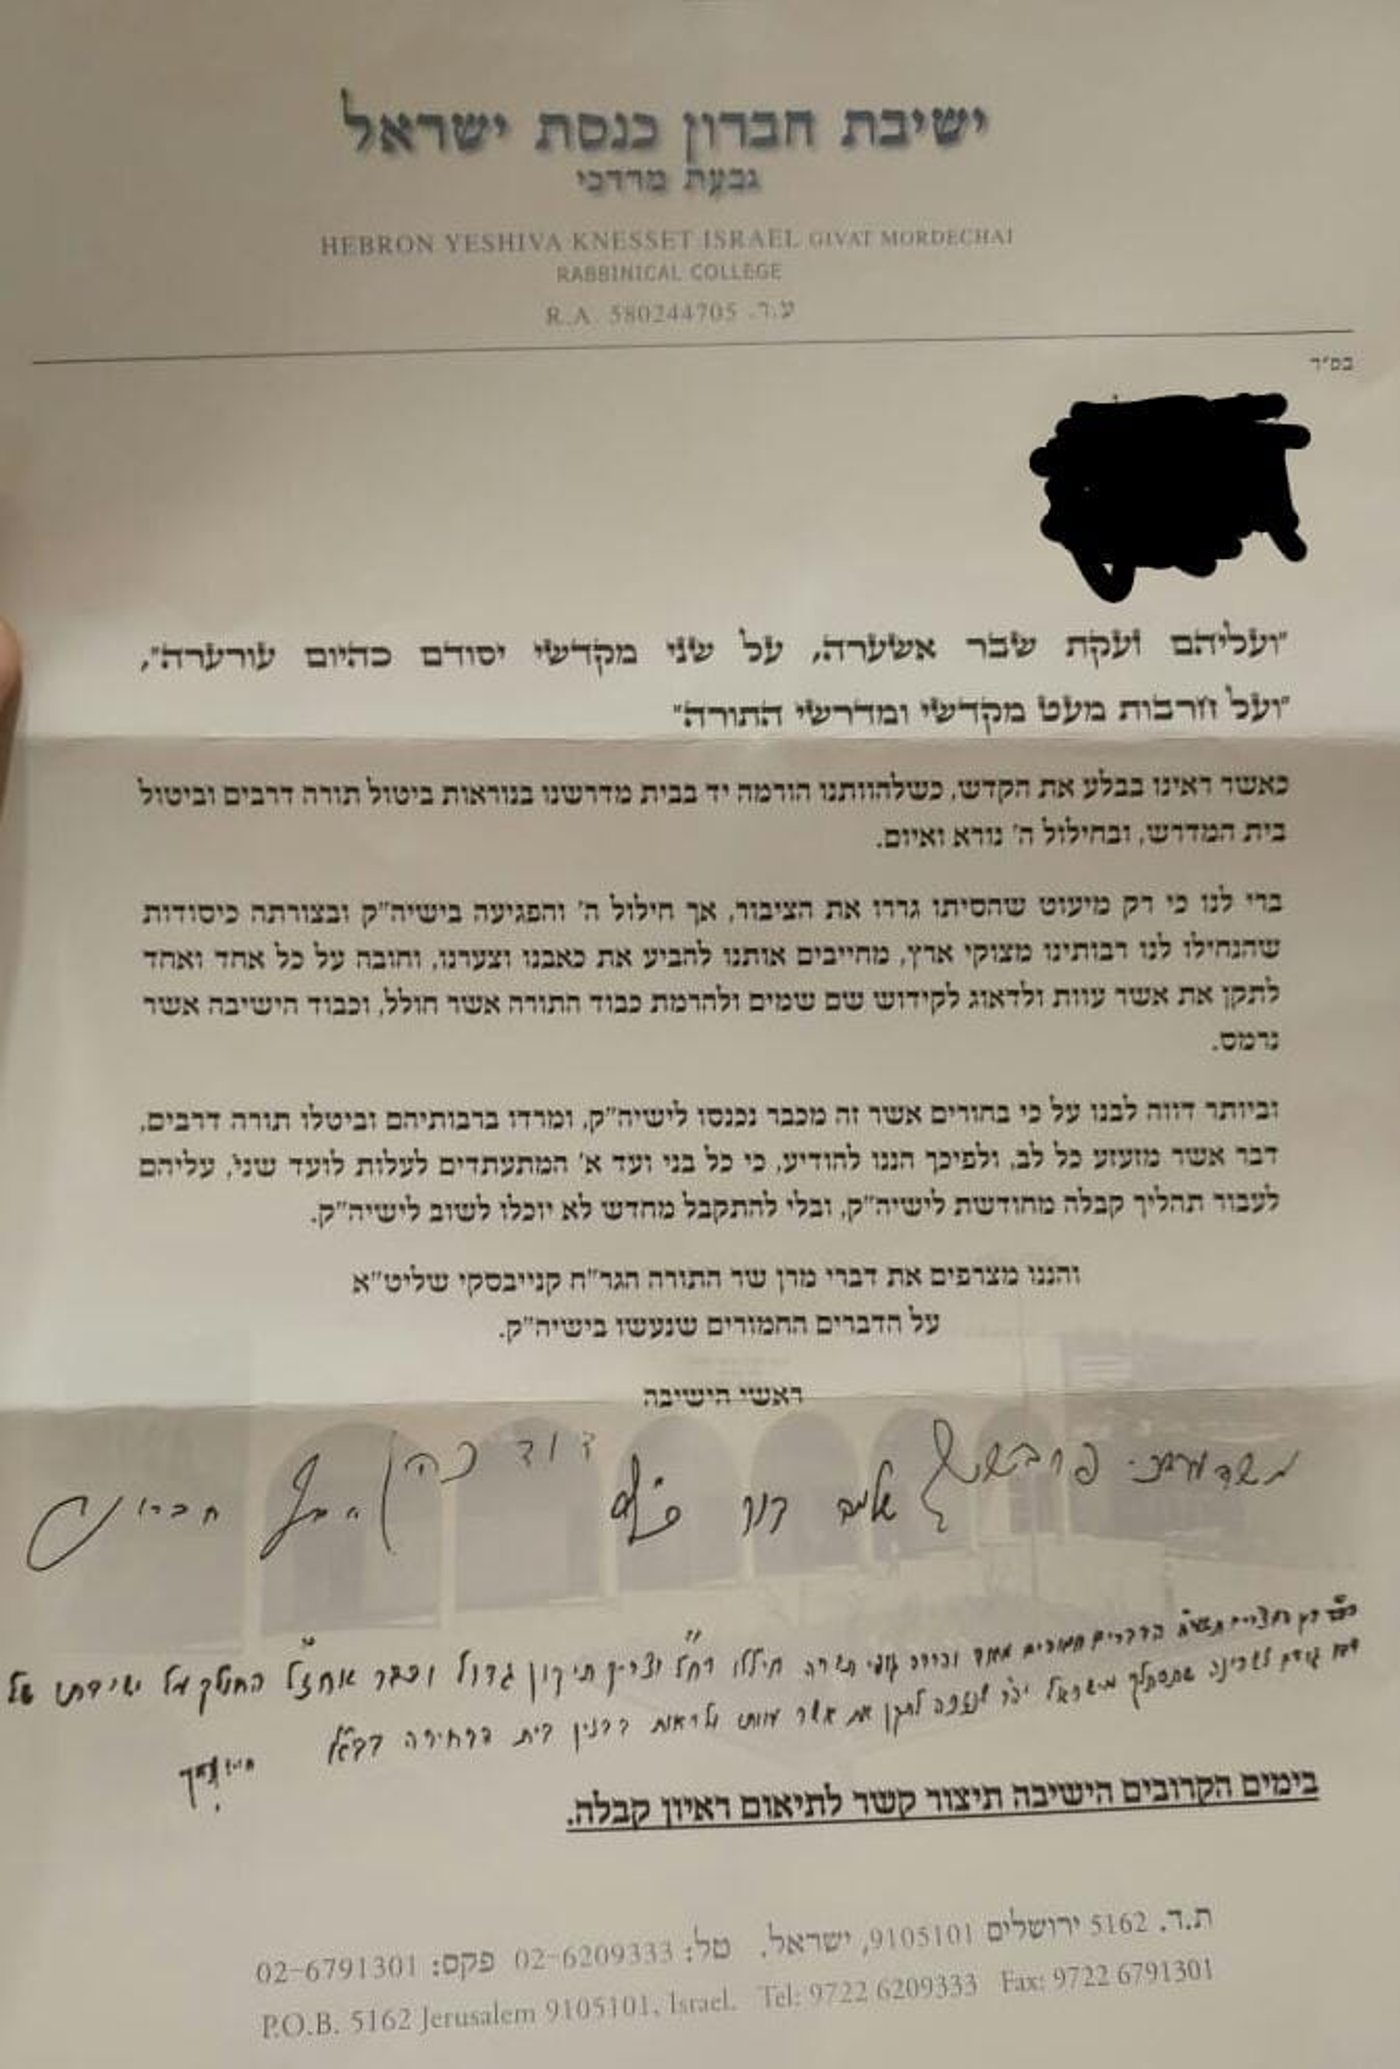 ישיבת חברון כנסת ישראל
גבעת מרדכי
HEBRON YESHIVA KNESSET ISRAEL GIVAT MORDECHAI
RABBINICAL COLLEGE
R.A. 580244705 .ע.ר
בס"ד
"ועליהם זעקת שבר אשערה, על שני מקדשי יסודם כהיום עורערה",
"ועל חרבות מעט מקדשי ומדרשי התורה"
כאשר ראינו בבלע את הקדש, כשלהוותנו הורמה יד בבית מדרשנו בנוראות ביטול תורה דרבים וביטול
בית המדרש, ובחילול ה' נורא ואיום.
ברי לנו כי רק מיעוט שהסיתו גררו את הציבור, אך חילול ה' והפגיעה בישיה"ק ובצורתה כיסודות
שהנחילו לנו רבותינו מצוקי ארץ, מחייבים אותנו להביע את כאבנו וצערנו, וחובה על כל אחד ואחד
לתקן את אשר עוות ולדאוג לקידוש שם שמים ולהרמת כבוד התורה אשר חולל, וכבוד הישיבה אשר
נרמס.
וביותר דווה לבנו על כי בחורים אשר זה מכבר נכנסו לישיה"ק, ומרדו ברבותיהם וביטלו תורה דרבים,
דבר אשר מזעזע כל לב, ולפיכך הננו להודיע, כי כל בני ועד א' המתעתדים לעלות לועד שני, עליהם
לעבור תהליך קבלה מחודשת לישיה"ק, ובלי להתקבל מחדש לא יוכלו לשוב לישיה"ק.
והננו מצרפים את דברי מרן שר התורה הגר"ח קנייבסקי שליט"א
על הדברים החמורים שנעשו בישיה"ק.
ראשי הישיבה
דוד כהן
חברוני
הדברים חמורים מאוד חיללו וצריך תיקון גדול וכבר
לתקן את אשר עוותו ולראות בבנין בית הבחירה בב"א
בימים הקרובים הישיבה תיצור קשר לתיאום ראיון קבלה.
ת.ד. 5162 ירושלים 9105101, ישראל. טל: 02-6209333 פקס: 02-6791301
P.O.B. 5162 Jerusalem 9105101, Israel. Tel: 9722 6209333 Fax: 9722 6791301